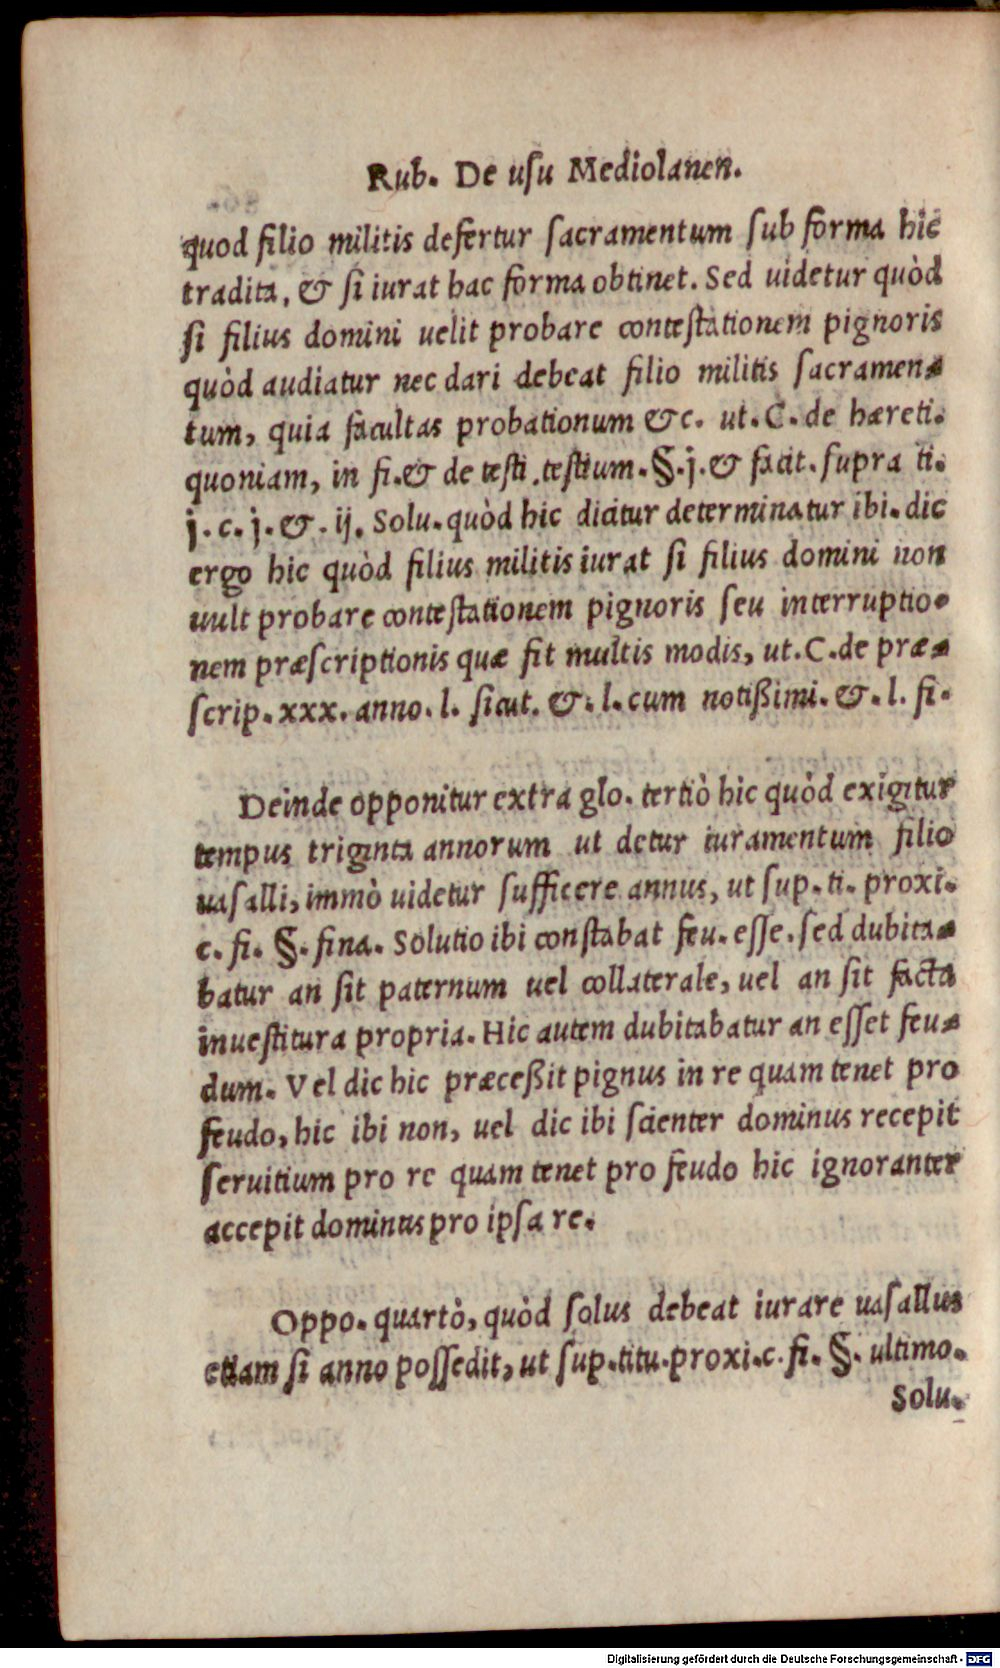 Rub. De uſu Mediolanen.
quod filio militis defertur ſacramentum ſub forma hic
tradita, & ſi iurat hac forma obtinet. Sed uidetur quòd
ſi filius domini uelit probare conteſtationem pignoris
quòd audiatur nec dari debeat filio militis ſacramen-
tum, quia facultas probationum &c. ut. C. de hæreti.
quoniam, in fi. & de teſti. teſtium. §. j. & facit. ſupra ti.
j. c. j. &. ij. Solu. quòd hic dicitur determinatur ibi. dic
ergo hic quòd filius militis iurat ſi filius domini non
uult probare conteſtationem pignoris ſeu interruptio-
nem præſcriptionis quæ fit multis modis, ut. C. de præ-
ſcrip. xxx. anno. l. ſicut. &. l. cum notißimi. &. l. fi.
Deinde opponitur extra glo. tertiò hic quòd exigitur
tempus triginta annorum ut detur iuramentum filio
uaſalli, immò uidetur ſufficere annus, ut ſup. ti. proxi.
c. fi. §. fina. Solutio ibi conſtabat feu. eſſe. ſed dubita-
batur an ſit paternum uel collaterale, uel an ſit facta
inueſtitura propria. Hic autem dubitabatur an eſſet feu-
dum. Vel dic hic præceßit pignus in re quam tenet pro
feudo, hic ibi non, uel dic ibi ſcienter dominus recepit
ſeruitium pro re quam tenet pro feudo hic ignoranter
accepit dominus pro ipſa re.
Oppo. quartò, quòd ſolus debeat iurare uaſallus
etiam ſi anno poſſedit, ut ſup. titu. proxi. c. fi. §. ultimo.
Solu.
Digitalisierung gefördert durch die Deutsche Forschungsgemeinschaft - DFG